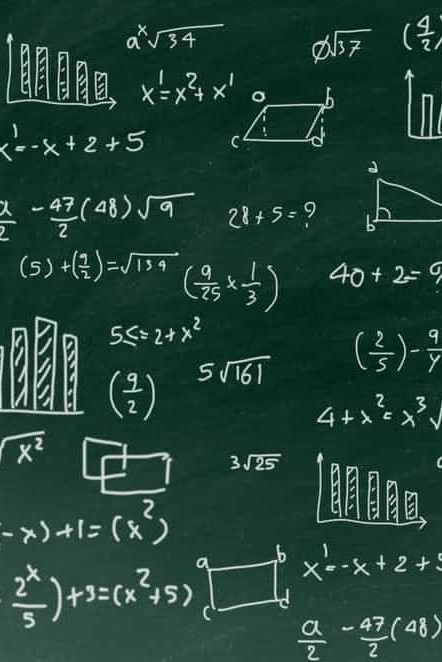 aˣ√34
∅√37
(4/2)
x¹=x²+x¹
a b
c d
x¹=-x+2+5
a/2 -47/2(48)√9
28+5=?
a
b
(5)+(9/2)=√134
(9/25 x 1/3)
40+2=?
5≤=2+x²
(9/2)
5√161
(2/5)-9/4
4+x²=x³√
√x²
3√25
-x)+1=(x²)
2ˣ/5)+3=(x²+5)
a b
c d
x¹=-x+2+5
a/2 -47/2(48)